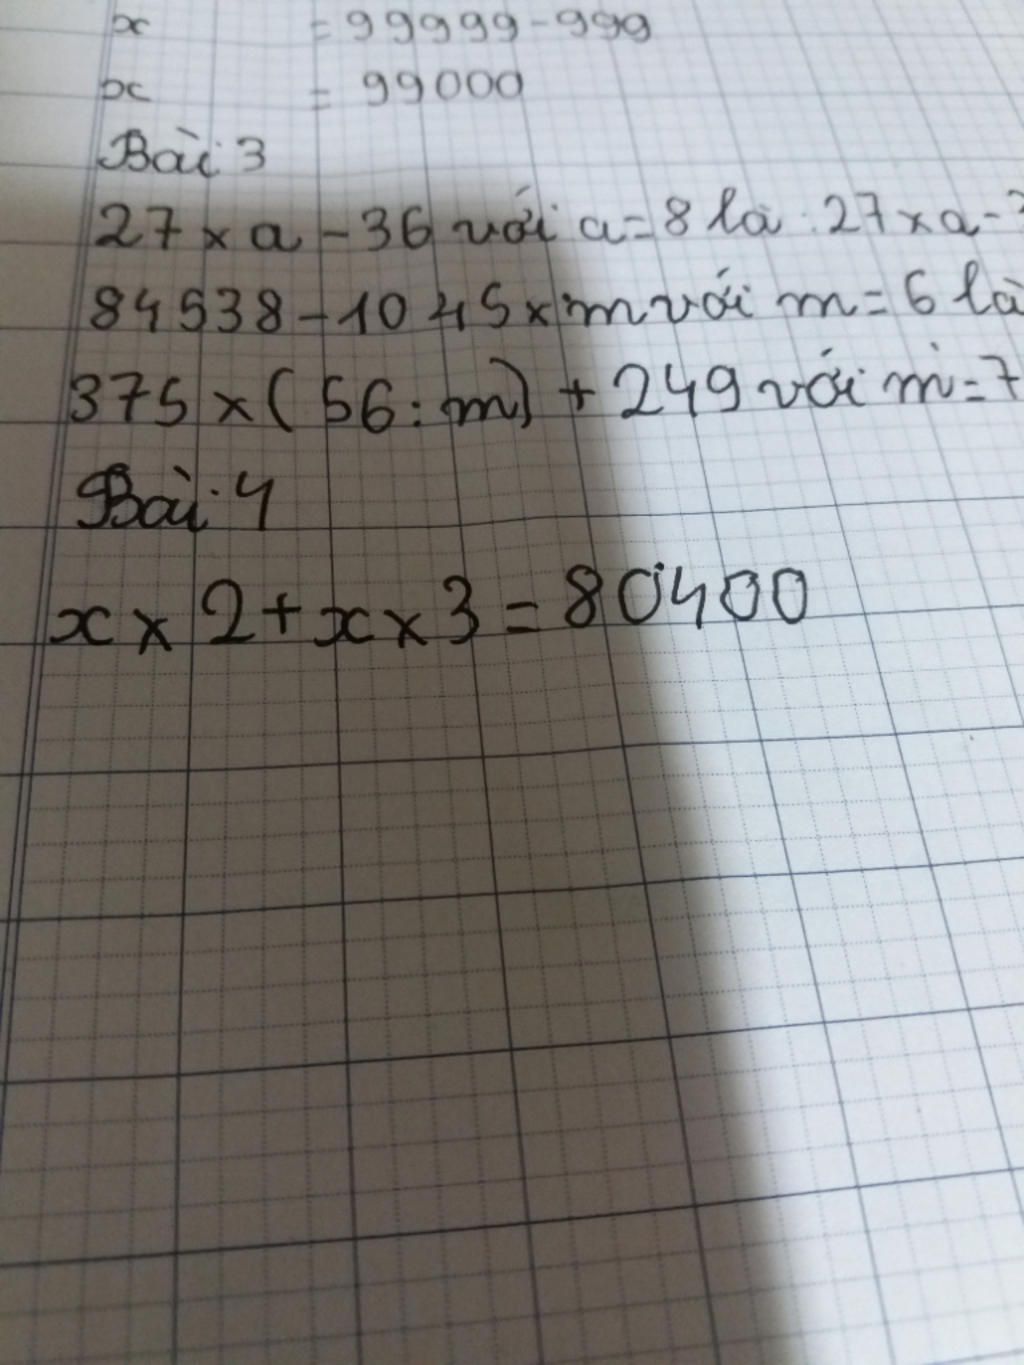 x = 99999 - 999
x = 99000
Bài 3
27 x a - 36 với a = 8 là : 27 x a -
84538 - 1045 x m với m = 6 là
375 x ( 56 : m ) + 249 với m = 7
Bài 4
x x 2 + x x 3 = 80400